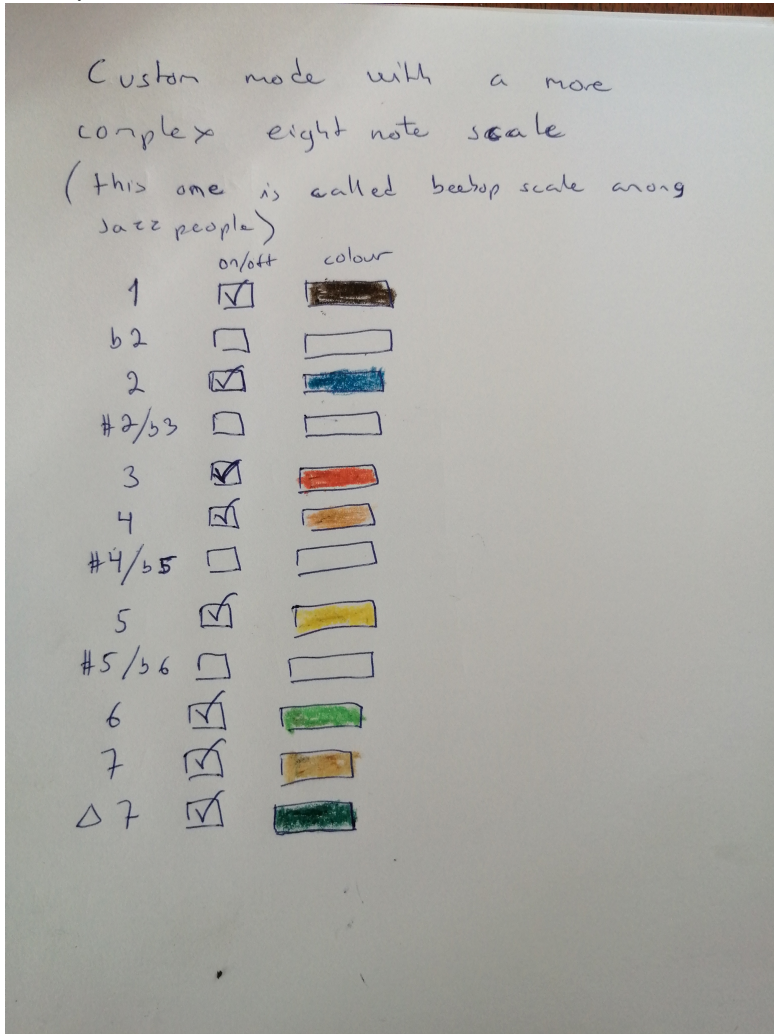 Custom mode with a more
complex eight note scale
(this one is called beebop scale among
Jazz people)
on/off colour
1
b2
2
#2/b3
3
4
#4/b5
5
#5/b6
6
7
Δ7